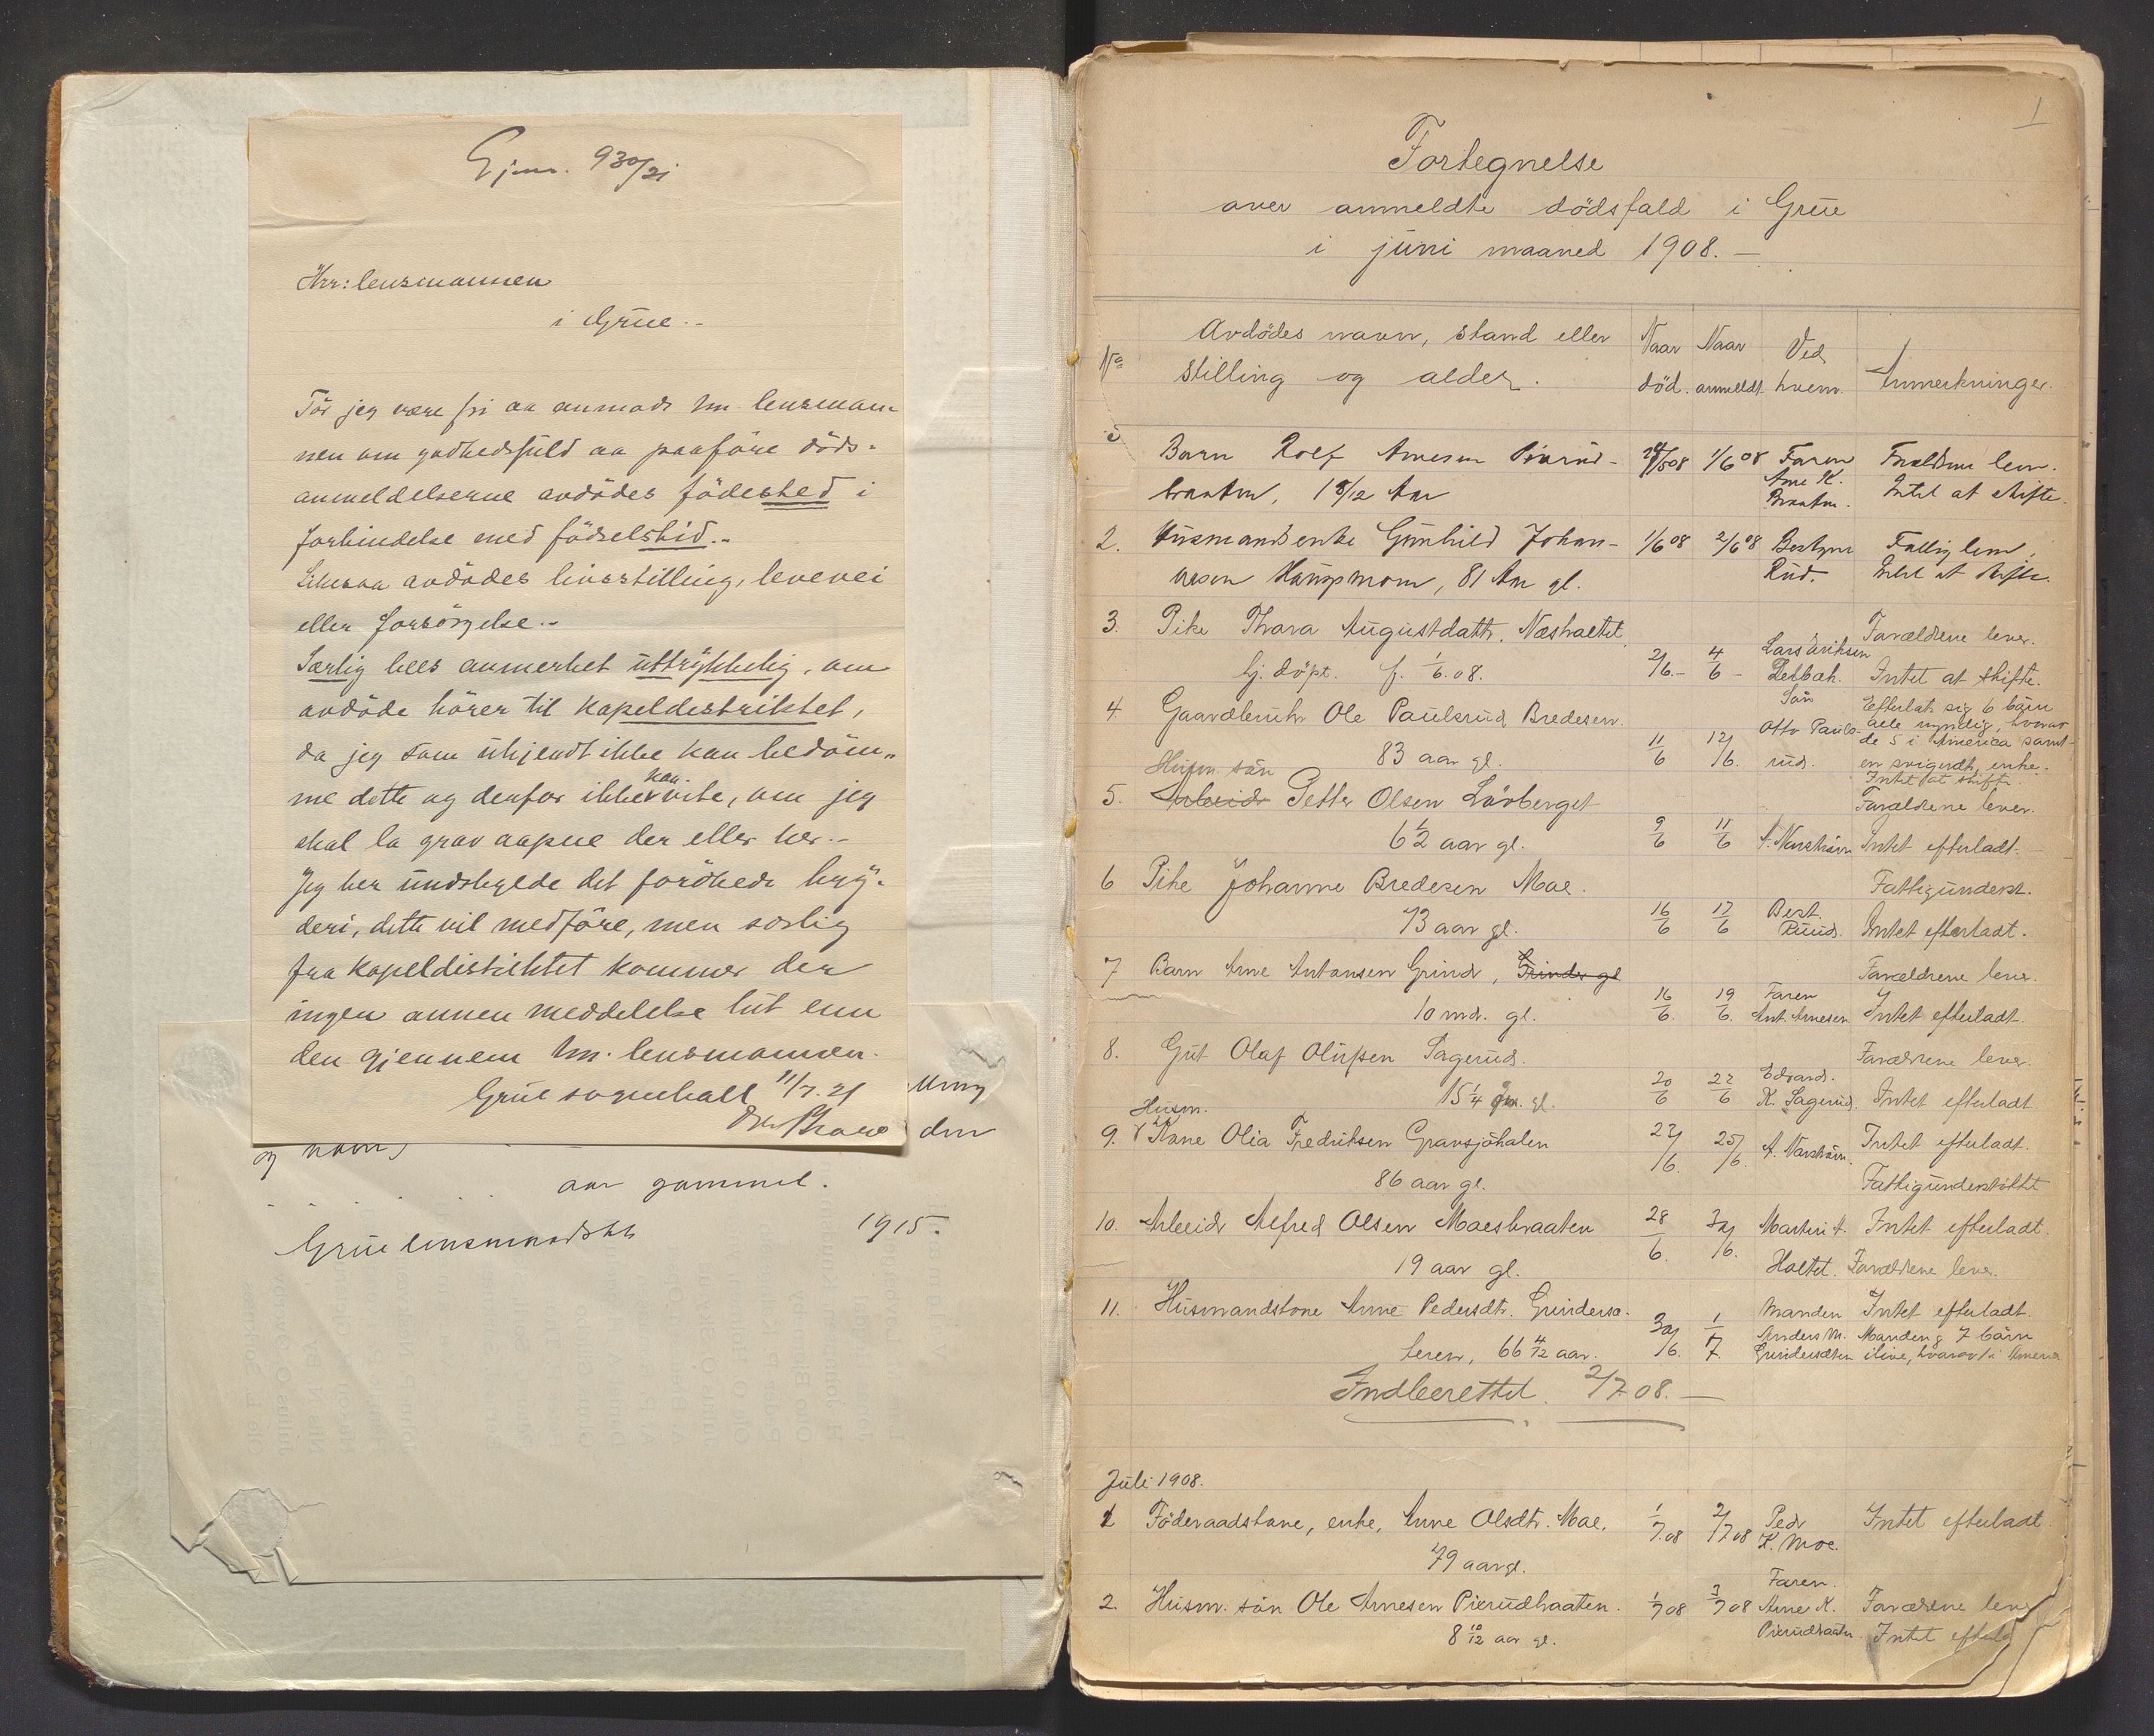 Gjnr. 930/21
Hrr: lensmannen
i Grue.-
Tör jeg være fri aa anmode hr. lensman-
nen om godhedsfuld aa paaföre döds-
anmeldelserne avdödes födested i
forbindelse med födselstid.-
Likesaa avdödes livsstilling, levevei
eller forsörgelse.-
Særlig bees anmerket uttrykkelig, om
avdöde hörer til kapeldestriktet,
da jeg som ukjendt ikke kan bedöm-
me dette og derfor ikke kan vite, om jeg
skal la grav aapne der eller her.-
Jeg ber undskylde det forökede bry-
deri, dette vil medföre, men særlig
fra kapeldistriktet kommer der
ingen annen meddelelse hit enn
den gjennem hr. lensmannen.
Grue sognekall 11/7.21
den
og navn,
aar gammel.
Grue lensmandsktr 1915.
1
Fortegnelse
over anmeldte dödsfald i Grue
i juni maaned 1908.-
No Avdödes navn, stand eller stilling og alder. Naar död. Naar anmeldt Ved hvem. Anmerkninger.
Barn Rolf Arnesen Pirud- /508 1/6 08 Faren Forældrene lever.
braaten, 1 8/12 Aar Arne K. Braaten. Intet at skifte.
2. Husmandsenke Gunhild Johan- 1/6 08 2/6 08 Bestyrer Fattiglem.
nesen Haugsmoen, 81 Aar gl. Rud. Intet at skifte.
3. Pike Thora Augustdattr. Næshaltet Lars Eriksen Forældrene lever.
hj. döpt. f. 1/6.08. 2/6.- 4/6 - Intet at skifte.
4 Gaardbruker Ole Paulsrud Bredesen Sön Efterlat sig 6 börn
83 aar gl. 11/6 12/6. Otto Paulsrud. alle myndig, hvorav
de 5 i Amerika samt
en svigerdt, enke.
Intet at skifte.
Husm. sön
5. Arbeider Petter Olsen Lövberget Forældrene lever.
6 1/2 aar gl. 9/6 11/6 A. Narström Intet efterladt.
6 Pike Johanne Bredesen Moe. Fattigunderst.
73 aar gl. 16/6 17/6 Best. Ruud. Intet efterladt.
7 Barn Arne Antonsen Grinder, Grinder gl Forældrene lever.
10 mdr. gl. 16/6. 19/6. Faren Ant. Arnesen Intet efterladt
8. Gut Olaf Olufsen Sagerud. Forældrene lever.
15 1/4 gl. 20/6 22/6 Edvard. K. Sagerud. Intet efterladt.
Husm.
9. Kone Olia Fredriksen Gransjöhalen 23/6. 25/6. A. Narström. Intet efterladt.
86 aar gl. Fattigunderstöttet
10. Arbeider Alfred Olsen Moesbraaten 28/6. 30/6. Martin A. Intet efterladt.
19 aar gl. Holtet. Forældrene lever.
11. Husmandskone Anne Pedersdtr. Grindersæ- Manden Intet efterladt.
teren, 66 4/12 aar. 30/6. 1/7. Anders M. Grindersæteren Manden og 7 börn
ilive, hvorav 1 i Amerika
Indberettet. 2/7 08.-
Juli 1908.
1 Föderaadskone, enke, Anne Olsdtr. Moe. 1/7.08 2/7 08 Peder K. Moe. Intet efterladt
79 aar gl.
2. Husm. sön Ole Arnesen Pierudbraaten. 1/7 08 3/7 08 Faren. Arne K. Forældrene lever
8 10/12 aar gl. Pierudbraaten. Intet efterla